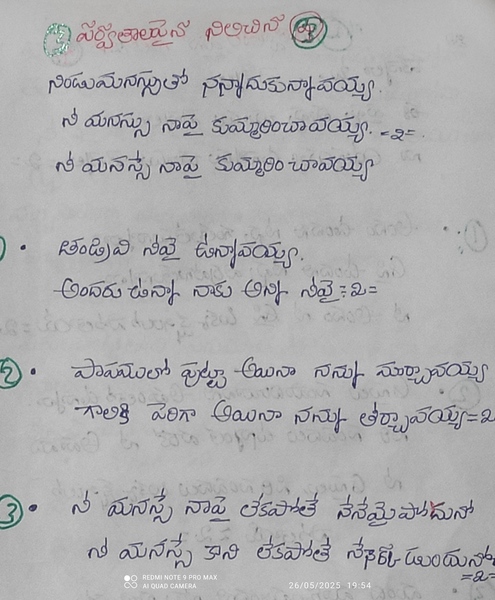 5 పర్వతాలపైన నిలిచిన
నిండుమనస్సుతో నన్నాదుకున్నావయ్య.
నీ మనస్సు నాపై కుమ్మరించావయ్య. =2=
నీ మనస్సే నాపై కుమ్మరించావయ్య
• తండ్రివి నీవై ఉన్నావయ్య.
అందరు ఉన్నా నాకు అన్ని నీవై =2=
2 • పాపములో పుట్టా అయినా నన్ను మార్చావయ్య
గాలికి పెరిగా అయినా నన్ను తీర్చావయ్య=2
3 • నీ మనస్సే నాపై లేకపోతే నేనేమైపోదునో
నీ మనస్సే కాని లేకపోతే ఉందునో
=2=
REDMI NOTE 9 PRO MAX
AI QUAD CAMERA
26/05/2025 19:54